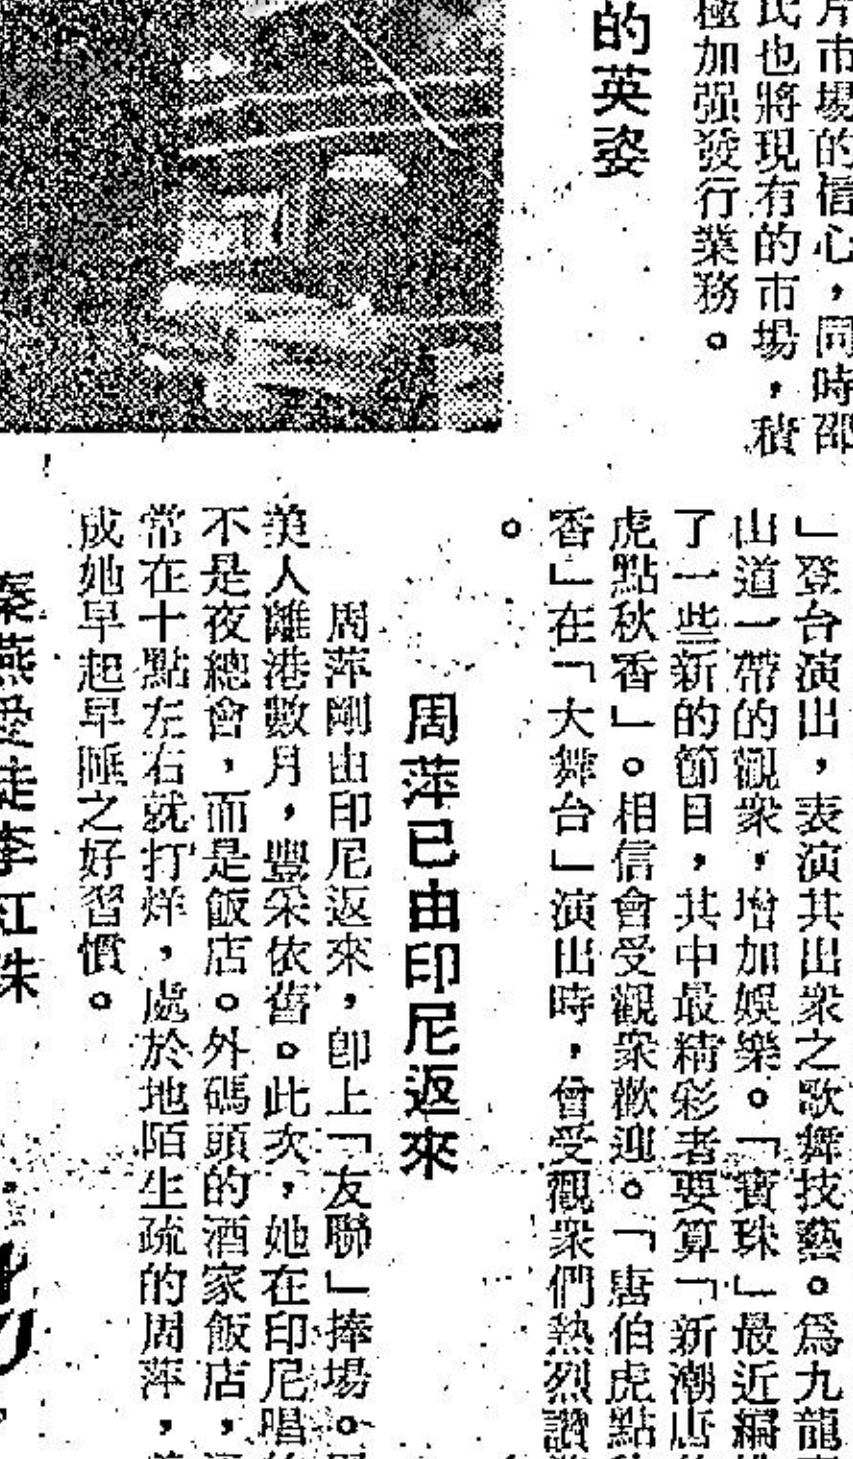 市場的信心，同時邵
氏也將現有的市場，積
極加强發行業務。
的英姿
」登台演出，表演其出衆之歌舞技藝。爲九龍
山道一帶的觀衆，增加娛樂。「寶珠」最近編
了一些新的節目，其中最精彩者要算「新潮唐
虎點秋香」。相信會受觀衆歡迎。「唐伯虎點
香」在「大舞台」演出時，曾受觀衆們熱烈讚
。
周萍已由印尼返來
周萍剛由印尼返來，卽上「友聯」捧場。
美人離港數月，豐采依舊。此次，她在印尼唱
不是夜總會，而是飯店。外碼頭的酒家飯店，
常在十點左右就打烊，處於地陌生疏的周萍，
成她早起早睡之好習慣。
秦燕愛徒李紅珠